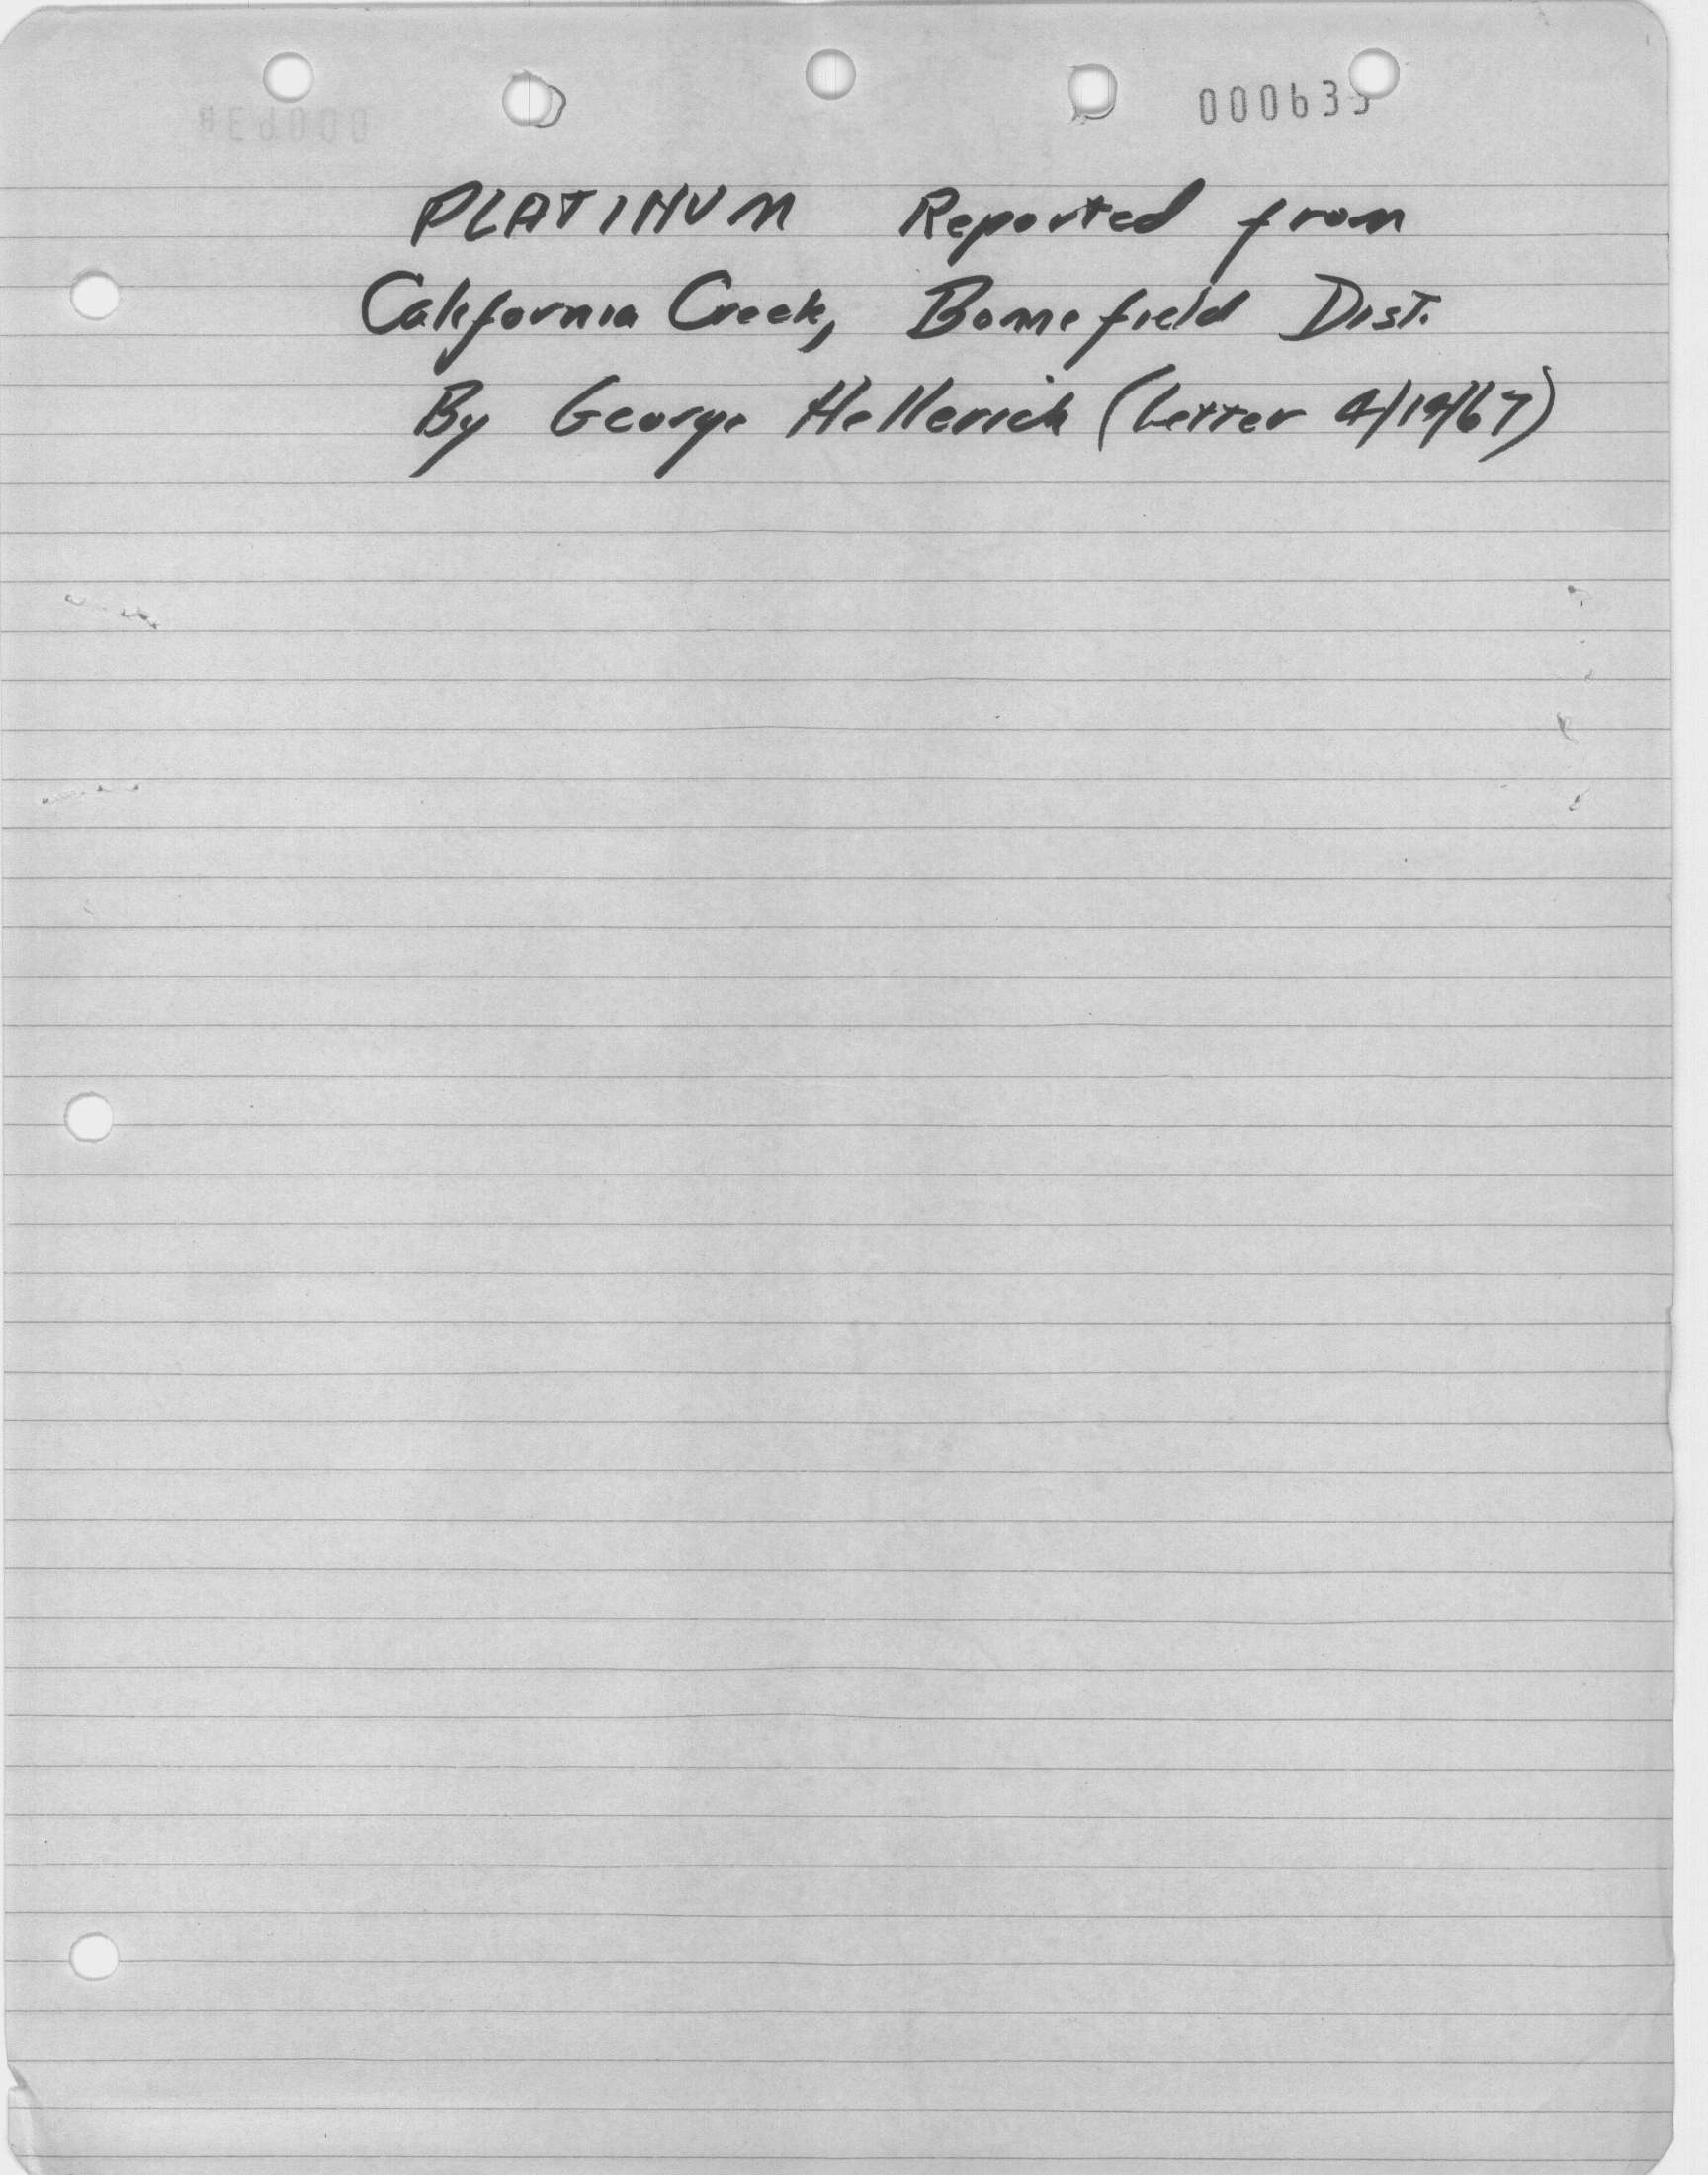 PLATINUM Reported from
California Creek, Bonnefield Dist.
By George Hellerich (Letter 4/19/67)